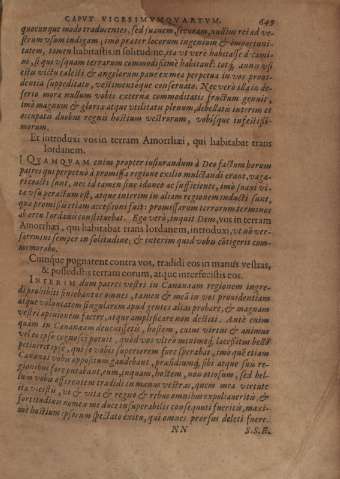 CAPVT VIGESIMVMQVARTVM. 649
quocunque modo traducentes, sed inanem, &
vestrum vsum indigam, imò præter locorum ingenium & importuni-
tatem, tamen habitastis in solitudine, ita vt verè habitasse
no, si quis vsquam terrarum commodissimè habitat: totq́; annu
estu victu cælesti & angelorum pane ex mea perpetua in vos proui-
dentia suppeditato, vestimentisque conseruato. Nec verò illa in de-
serto mora nullum vobis externa commoditatis fructum genuit,
imò magnum & gloria atque vtilitatis plenum, debellato interim et
occupato duobus regnis hostium vestrorum, vobisque infestissi-
morum.
Et introduxi vos in terram Amorrhæi, qui habitabat trans
Iordanem.
QVAMQVAM enim propter iusiurandum à Deo factum horum
patres qui perpetuò à promissa regione exilio mulctandi erant, vaga-
ti essent, nec id tamen sine idoneo ac sufficiente, imò suaui vi-
ta vsu peractum est, atque interim in aliam regionem inducti sunt,
quæ promissis etiam accessioni fuit: promissarum terrarum terminus
ab ortu Iordani constituebat. Ego verò, inquit Dem, vos in terram
Amorrhæi, qui habitabat trans Iordanem, introduxi, vt nò ver-
semini semper in solitudine, & interim quid vobis contigerit com-
memorabo.
Cumque pugnarent contra vos, tradidi eos in manus vestras,
& possedistis terram eorum, atque interfecistis eos.
INTERIM dum patres vestri in Cananæam regionem ingre-
di prohibiti funebantur omnes, tamen & mea in vos prouidentiam
atque voluntatem singularem apud gentes alias probare, & magnam
vestri opinionem facere, atque amplificare non destiti. Ante enim
quàm in Cananæam deuenissetis, hostem, cuius virtus & animus
vel eo ipso cognosci potuit, quòd vos vltro nimirumq́; lacessitus bello
petiuerit ipse, qui se vobis superiorem fore sperabat, imò què etiam
Cananæi vobis oppositum gaudebant, præsidiumq́; sibi atque suæ re-
gionibus fore putabant, eum, inquam, hostem, non otiosum, sed bel-
lum vobis afferentem tradidi in manus vestras, quem mea virtute
ita vicistis, vt & vita & regno & rebus omnibus expoliaueritis, &
fortitudinis nomen me duce insuperabiles consequuti fueritis, maxi-
mè hostium ipsorum spectato exitu, qui omnes prorsus deleti fuere.
NN S.S.E.